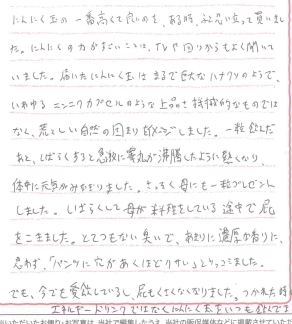 にんにく玉の一番高くて良いのを、ある時、ふと思い立って買いまし
た。にんにくの力がすごいことは、TVや周りからもよく聞いて
いました。届いたにんにく玉はまるで巨大なハナクソのようで、
いわゆるニンニクカプセルのような上品さ機械的なものでは
なく、荒々しい自然の固まりをイメージしました。一粒飲んだ
あと、しばらくすると急激に睾丸が沸騰したように熱くなり、
体中に元気がみなぎりました。さっそく母にも一粒プレゼント
しました。しばらくして母が料理をしている途中で屁
をこきました。とてつもない臭いで、あまりに濃厚な香りに、
思わず、「パンツに穴があくほどクサい」とツッこみました。
でも、今でも愛飲しているし、屁もくさくなくなりました。つかれた時は
エネルギードリンクではなくにんにく玉をいつも飲んでま
いただいたお便り・お写真は、当社で編集したうえ、当社の販促媒体などに掲載させていただ